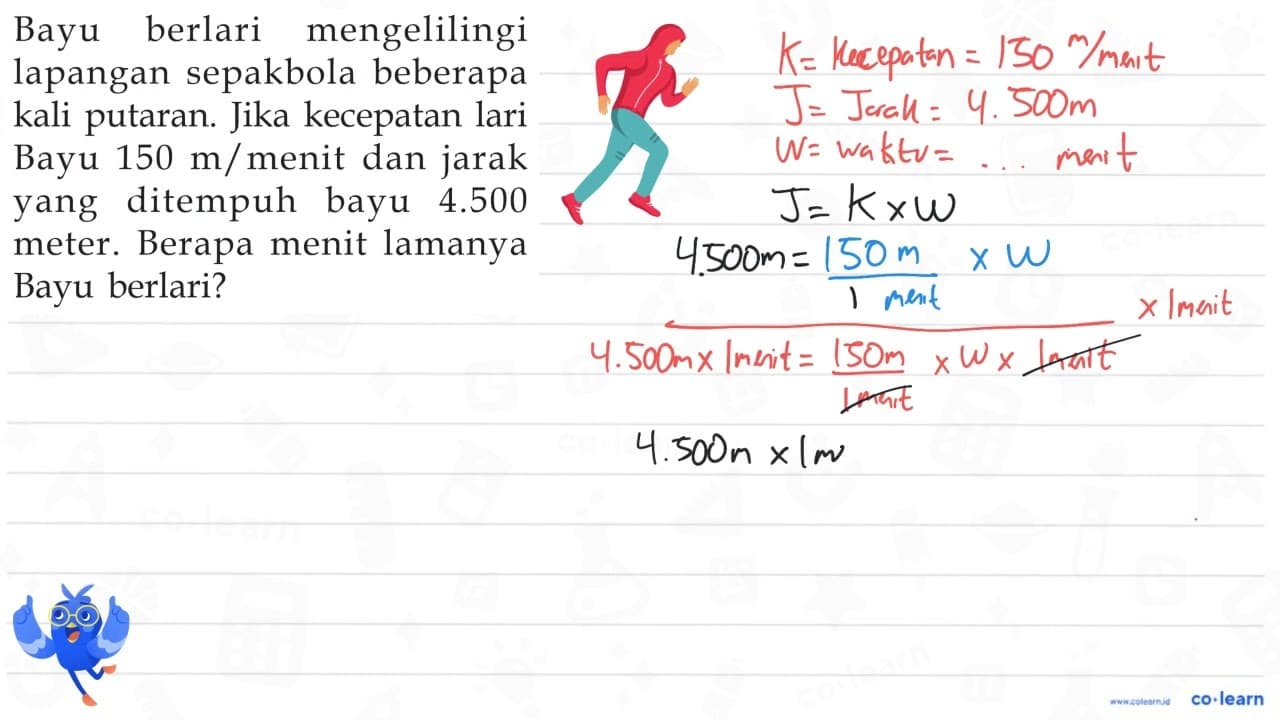 Bayu berlari mengelilingi
lapangan sepakbola beberapa
kali putaran. Jika kecepatan lari
Bayu 150 m/menit dan jarak
yang ditempuh bayu 4.500
meter. Berapa menit lamanya
Bayu berlari?
K = Kecepatan = 150 m/menit
J = Jarak = 4.500m
W = waktu = ... menit
J = K x W
4.500m = 150 m / 1 menit x W
x 1menit
4.500m x 1menit = 150m / 1menit x W x 1menit
4.500m x 1m
co-learn
www.colearn.id co·learn